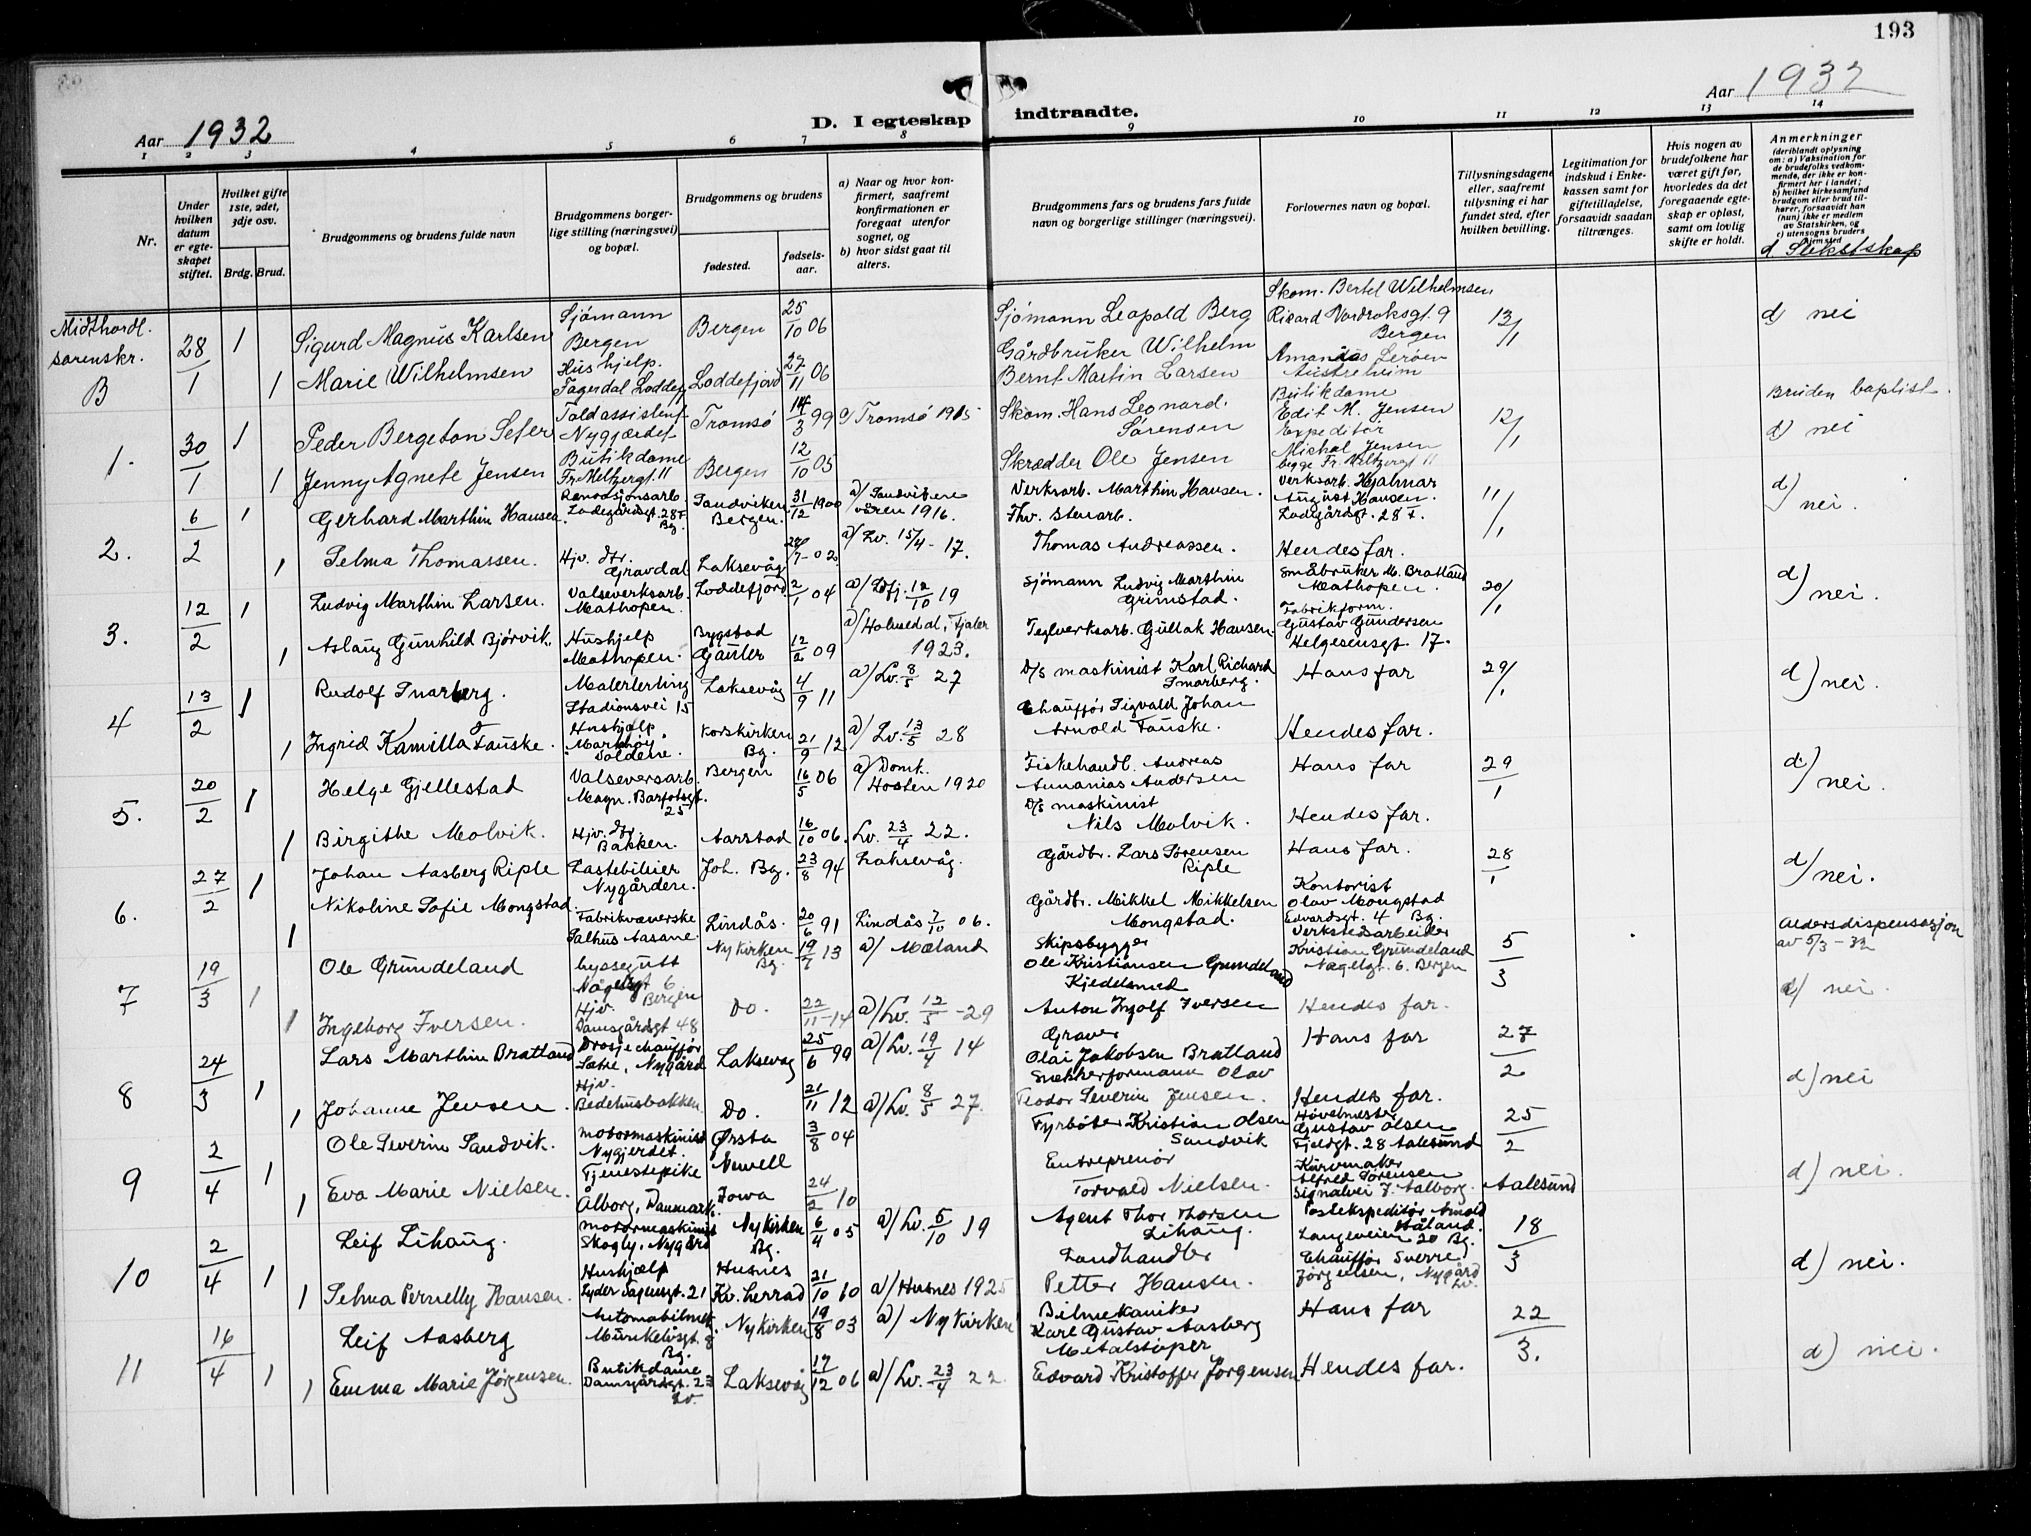 193
Aar 1932
D. I egteskap indtraadte.
Aar 1932
1 2 3 4 5 6 7 8 9 10 11 12 13 14
Nr.
Under hvilken datum er egteskapet stiftet.
Hvilket gifte 1ste, 2det, 3dje osv.
Brdg. Brud.
Brudgommens og brudens fulde navn
Brudgommens borgerlige stilling (næringsvei) og bopæl.
Brudgommens og brudens
fødested.
fødselsaar.
a) Naar og hvor konfirmert, saafremt konfirmationen er foregaat utenfor sognet, og
b) hvor sidst gaat til alters.
Brudgommens fars og brudens fars fulde navn og borgerlige stillinger (næringsvei).
Forlovernes navn og bopæl.
Tillysningsdagene eller, saafremt tillysning ei har fundet sted, efter hvilken bevilling.
Legitimation for indskud i Enkekassen samt for giftetilladelse, forsaavidt saadan tiltrænges.
Hvis nogen av brudefolkene har været gift før, hvorledes da det foregaaende egteskap er opløst, samt om lovlig skifte er holdt.
Anmerkninger
(deriblandt oplysning om: a) Vaksination for de brudefolks vedkommende, der ikke er konfirmert her i landet; b) hvilket kirkesamfund brudgom eller brud tilhører, forsaavidt han (hun) ikke er medlem av Statskirken, og c) utensogns bruders hjemsted
d Slektskap
Midthordl. sorenskr. B
28/1 1 Sigurd Magnus Karlsen Sjömann Bergen Bergen 25/10 06 Sjömann Leopold Berg Skom. Bertel Wilhelmsen Ricard Nordraksgt. 9 Bergen 13/1 d) nei
1 Marie Wilhelmsen Hushjelp. Fagerdal Loddefj Loddefjord 27/11 06 Gårdbruker Wilhelm Bernt Martin Larsen Amanias Leröen Austreheim
Bruden baptist.
1. 30/1 1 Peder Bergeton Seter Toldassistent Nygjærdet Tromsö 14/3 99 a) Tromsö 1915 Skom. Hans Leonard Sörensen Butikdame Edit M. Jensen 12/1 d) nei
1 Jenny Agnete Jensen Butikdame Fr. Meltzergt. 11 Bergen 12/10 05 Skrædder Ole Jensen Expeditör Michal Jensen begge Fr. Meltzergt 11
2. 6/2 1 Gerhard Marthin Hansen. Renovsjonsarb. Ladegårdsgt. 28 F Bg. Sandviken Bergen. 31/12 1900 a) Sandviken våren 1916. Verksarb. Marthin Hansen. Verksarb. Hjalmar August Hansen. Ladegårdsgt. 28 F. 11/1 d) nei.
1 Selma Thomassen. Hjv. dtr. Gravdal Laksevåg 02 a) Lv. 15/4 - 17. Fhv. stenarb. Thomas Andreassen. Hendes far.
3. 12/2 1 Ludvig Marthin Larsen. Valseverksarb. Mathopen. Loddefjord 2/1 04 a) Ldfj. 12/10 19 Sjömann Ludvig Marthin Grimstad. Småbruker M. Bratland Mathopen. 20/1 d) nei.
1 Aslaug Gunhild Bjørvik. Hushjelp Mathopen. Bygstad Gauler 12/2 09 a) Holmedal, Fjaler 1923. Teglverksarb. Gullak Hansen. Fabrikform. Gustav Gundersen Helgesensgt. 17.
4 13/2 1 Rudolf Snarberg. Malerlerling Stadionsvei 15 Laksevåg 4/9 11 a) Lv. 8/5 27 D/s maskinist Karl Richard Smarberg. Hans far 29/1 d) nei.
1 Ingrid Kamilla Fauske. Hushjelp Marihöi Toldene. Korskirken Bg. 21/9 12 a) Lv. 13/5 28 Chauffør Sigvald Johan Arnold Fauske. Hendes far.
5. 20/2 1 Helge Gjellestad Valseversarb. Magn. Barfotsgt. 25 Bergen 16/5 06 a) Domk. Hosten 1920 Fiskehandl. Andreas Annanias Andersen Hans far 29/1 d) nei.
1 Birgithe Molvik. Hjv. dtr. Bakken. Aarstad 16/10 06. Lv. 23/4 22. D/s maskinist Nils Molvik. Hendes far.
6. 27/2 1 Johan Aasberg Riple Lastebileier Nygården. Joh. Bg. 23/8 94 Laksevåg. Gårdbr. Lars Sørensen Riple Hans far. 28/1 d) nei.
1 Nikoline Sofie Mongstad. Fabrikvæverske Salhus Aasane Lindås. 20/6 91 Lindås 7/10 06. Gårdbr. Mikkel Mikkelsen Mongstad. Kontorist Olav Mongstad Edvardsgt. 4 Bg. Aldersdispensasjon av 5/3 - 32
7 19/3 1 Ole Grundeland hyssegutt Nøgelsgt 6 Bergen Nykirken Bg. 19/7 13 a) Mæland Skipsbygger Ole Kristiansen Grundeland Verkstedsarbeider Kristian Grundeland Nøgelgt. 6. Bergen 5/3 d) nei.
1 Ingeborg Iversen. Hjv. Damsgårdsgt 48 Do. 22/11 - 14 a) Lv. 12/5 - 29 Kjedelsmed Anton Ingolf Iversen Hendes far.
8 24/3 1 Lars Marthin Bratland Drosjechauffør Sætre, Nygård Laksevåg 25/6 99 a) Lv. 19/4 14 Graver Olai Jakobsen Bratland Hans far 27/2 d) nei
1 Johanne Jensen. Hjv. Bedehusbakken. Do. 21/11 12 a) Lv. 8/5 27. Snekkerformann Olav Teodor Severin Jensen. Hendes far.
9 2/4 1 Ole Severin Sandvik. Motormaskinist Nygjerdet. Ørsta 3/8 04 Fyrbøter Kristian Olsen Sandvik Høvelmester Gustav Olsen Fjeldgt. 28 Aalesund 25/2 d) nei.
1 Eva Marie Nielsen. Tjenestepike Ålborg, Danmark. Newell Iowa 24/2 10 Entreprenør Torvald Nielsen. Kurvmaker Alfred Sørensen Signalvei 7. Aalborg. Aalesund
10 2/4 1 Leif Lihaug. Motormaskinist Skogly, Nygård Nykirken Bg. 6/4 05 a) Lv. 5/10 19 Agent Thor Thorsen Lihaug. Postekspeditør Arnold Håland. Langeveien 20 Bg. 18/3 d) nei.
1 Selma Pernelly Hansen. Hushjælp Lyder Sagensgt. 21 Husnes Kv. herrad 21/10 10 a) Husnes 1925 Landhandler Petter Hansen. Chauffør Sverre Jørgensen, Nygård Lv.
11 16/4 1 Leif Aasberg Automobilmek. Munkebotsgt 8 Bg. Nykirken 19/8 03 a) Nykirken Bilmekaniker Karl Gustav Aasberg Hans far 22/3. d) nei.
1 Emma Marie Jørgensen. Butikdame Damsgårdsgt. 23 Lv. Laksevåg 17/12 06 a) Lv. 23/4 22. Metalstøper Edvard Kristoffer Jørgensen Hendes far.